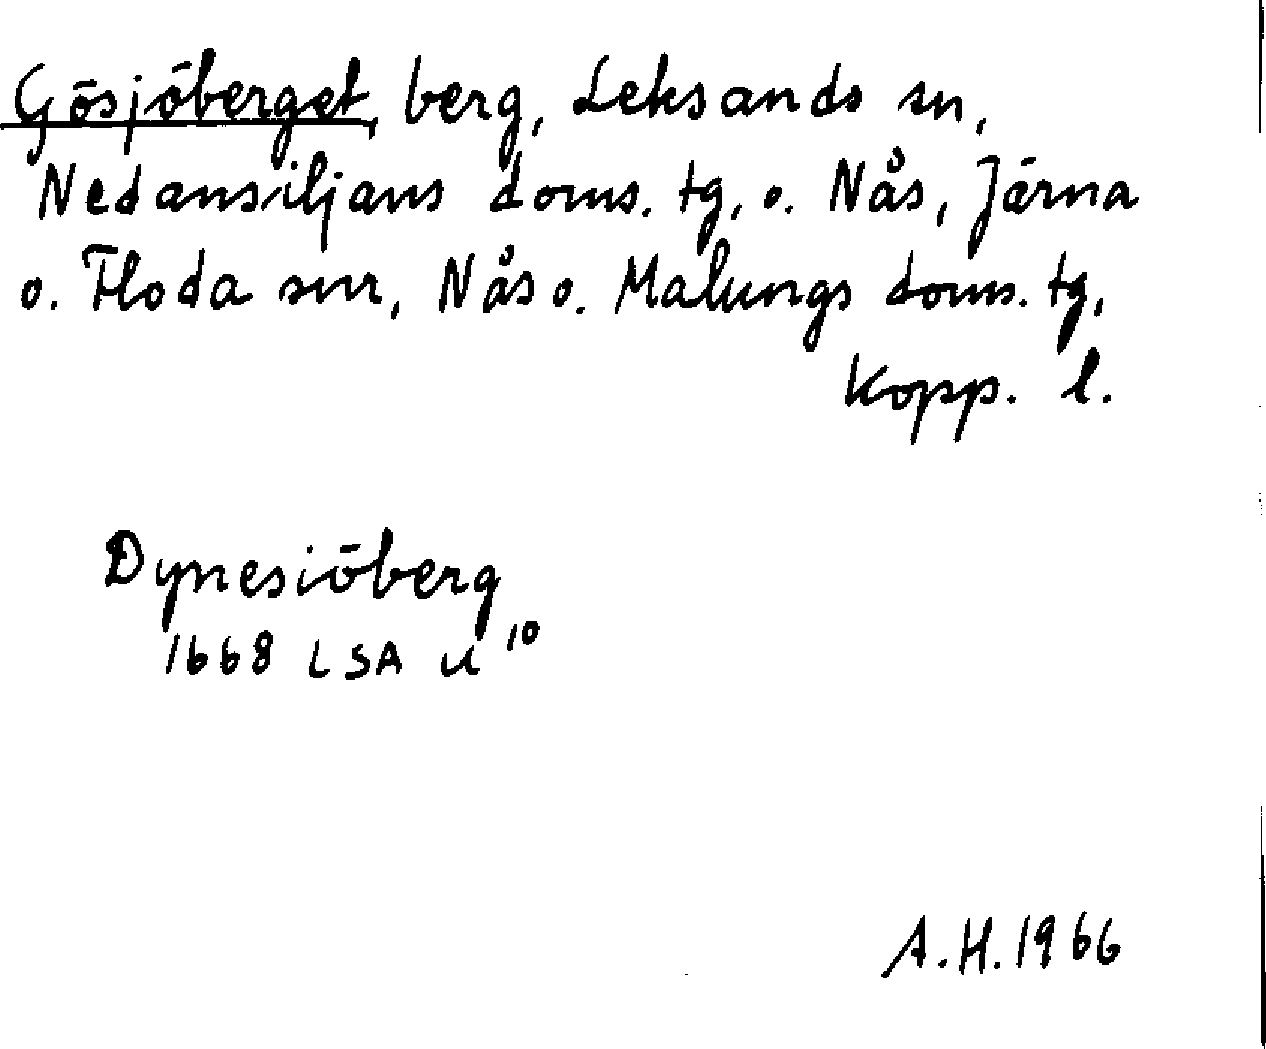 Gösjöberget, berg, Leksands sn,
Nedansiljans doms. tg, o. Nås, Järna
o. Floda snr, Nås o. Malungs doms. tg,
Kopp. l.
Dynesiöberg
1668 LSA U 10
A.H. 1966